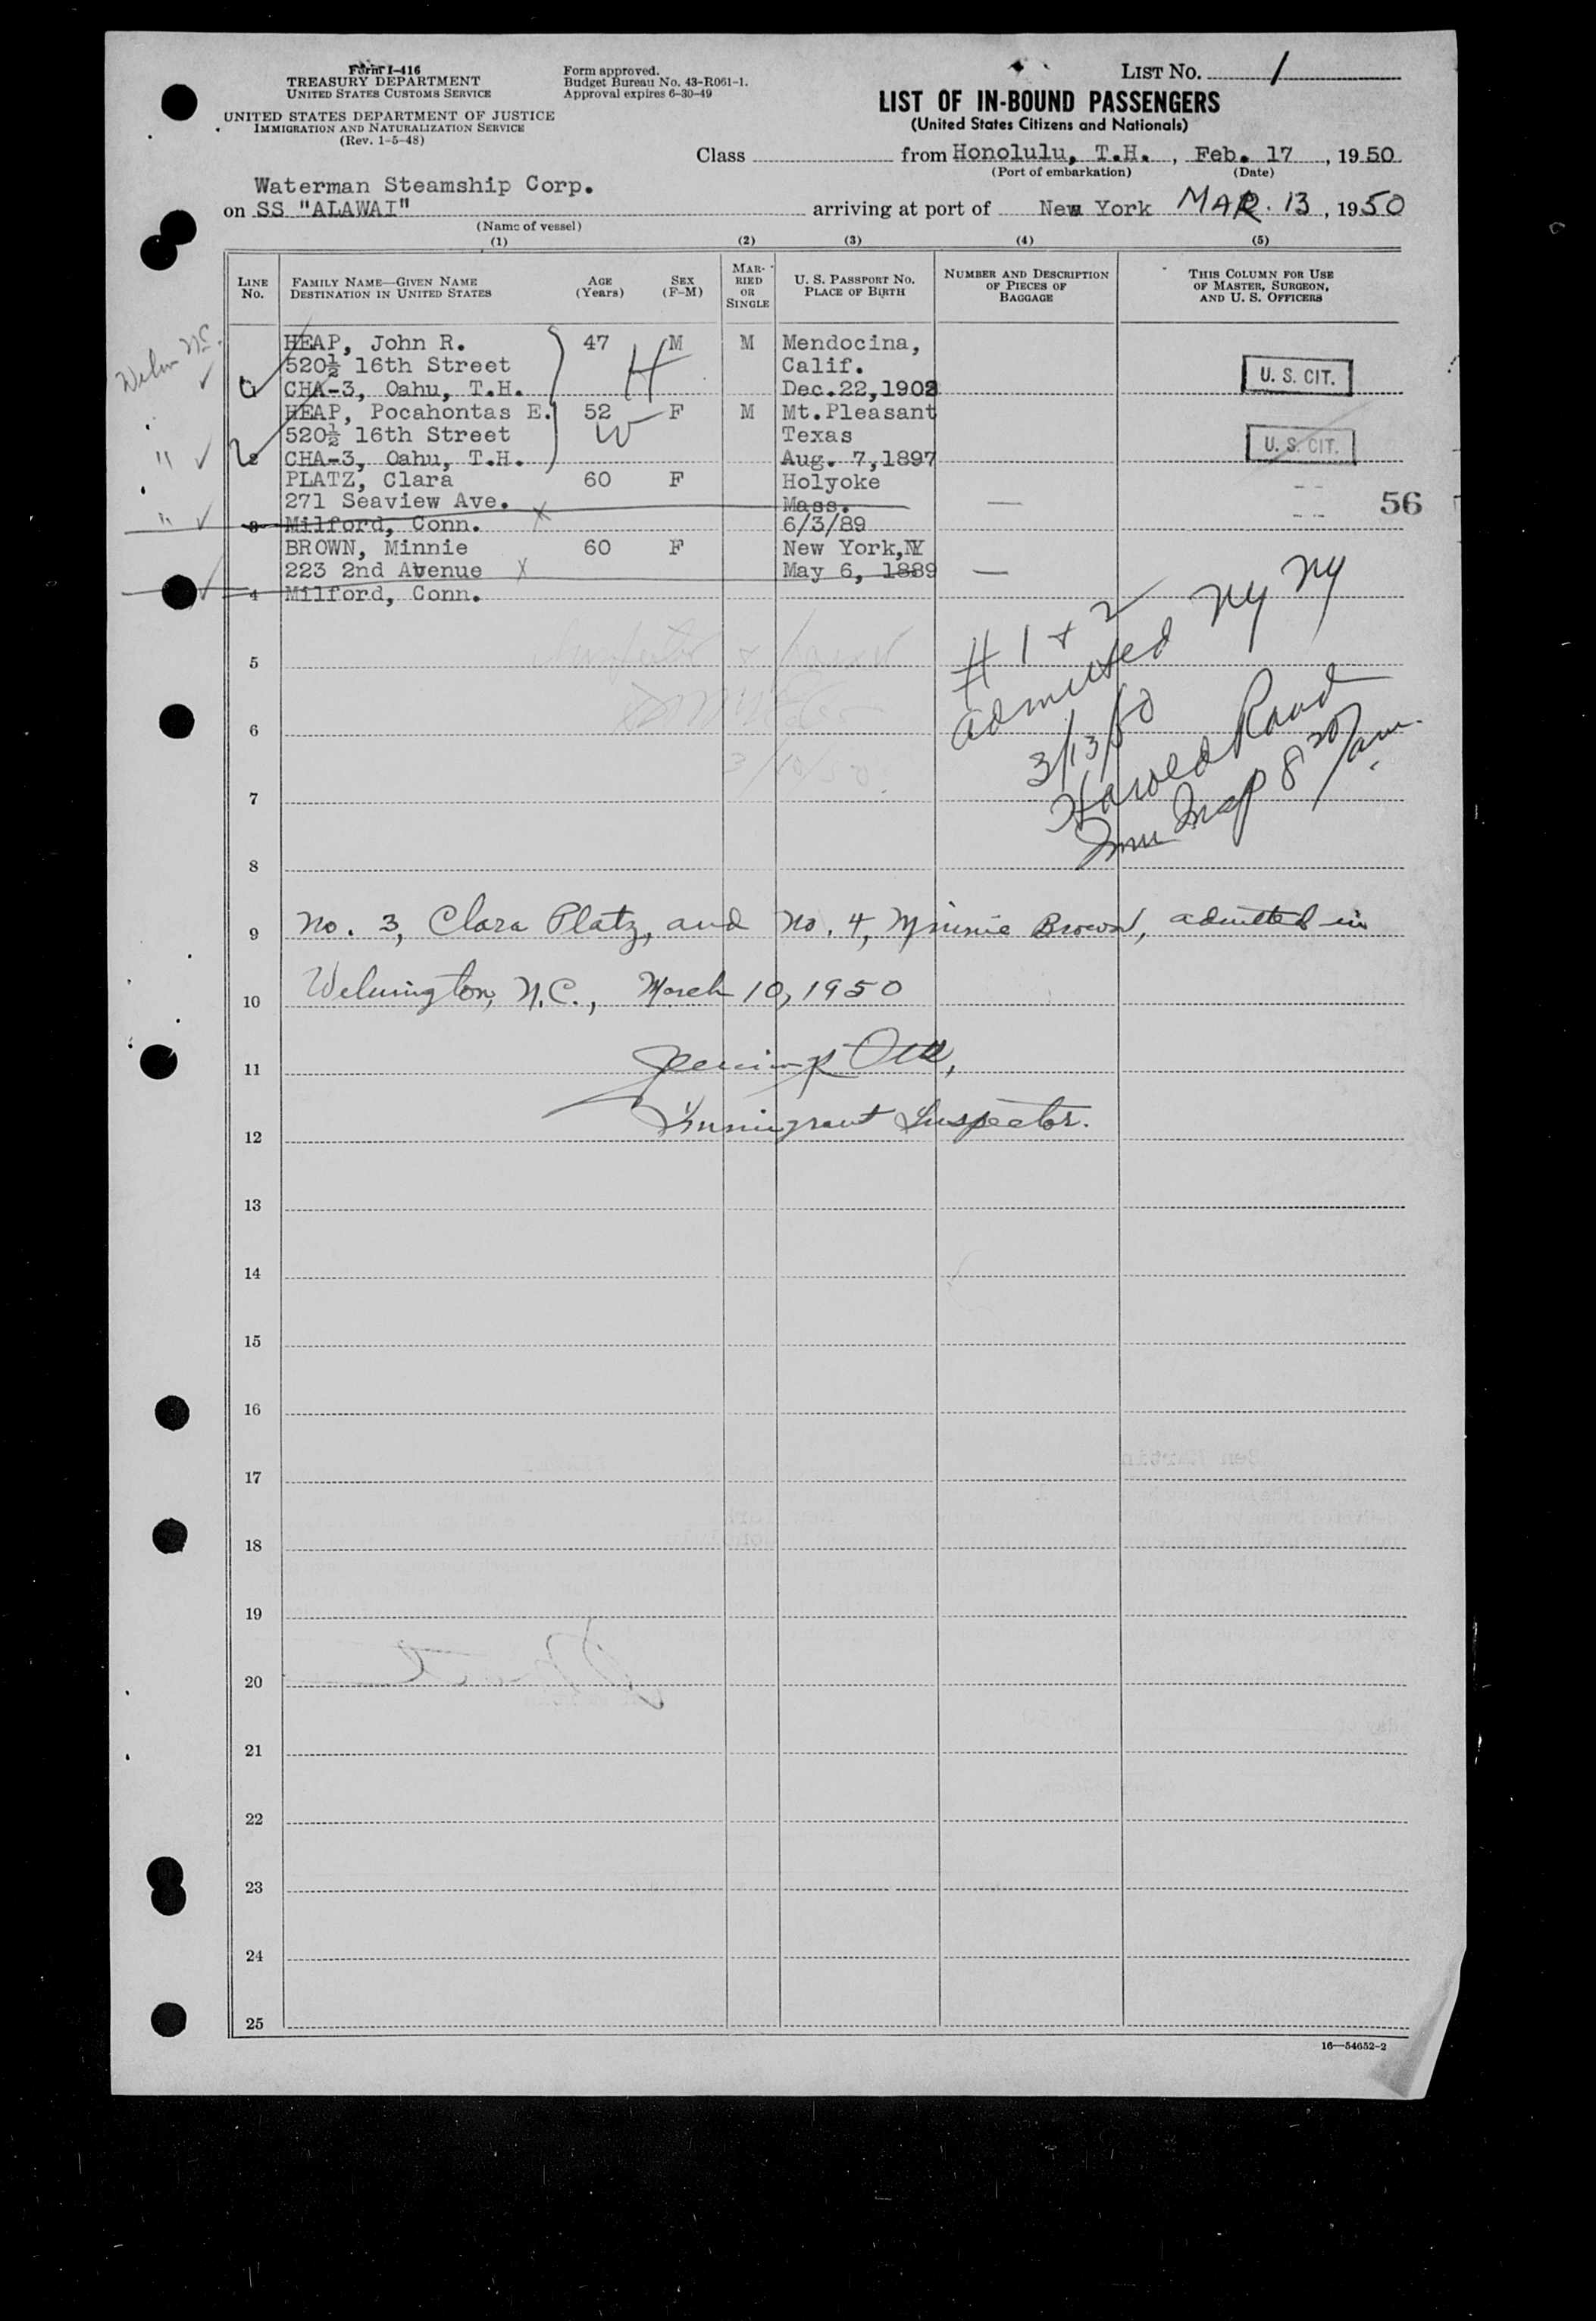 Form I-416
TREASURY DEPARTMENT
UNITED STATES CUSTOMS SERVICE
UNITED STATES DEPARTMENT OF JUSTICE
IMMIGRATION AND NATURALIZATION SERVICE
(Rev. 1-5-48)
Form approved.
Budget Bureau No. 43-R061-1.
Approval expires 6-30-49
LIST NO. 1
LIST OF IN-BOUND PASSENGERS
(United States Citizens and Nationals)
Class from Honolulu, T.H., Feb. 17, 1950
(Port of embarkation) (Date)
Waterman Steamship Corp.
on SS "ALAWAI" arriving at port of New York MAR. 13, 1950
(Name of vessel)
(1) (2) (3) (4) (5)
LINE No.
FAMILY NAME—GIVEN NAME
DESTINATION IN UNITED STATES
AGE (Years)
SEX (F-M)
MARRIED OR SINGLE
U. S. PASSPORT NO.
PLACE OF BIRTH
NUMBER AND DESCRIPTION OF PIECES OF BAGGAGE
THIS COLUMN FOR USE OF MASTER, SURGEON, AND U. S. OFFICERS
Wilm NC.
HEAP, John R. 47 M M Mendocina,
520½ 16th Street H Calif.
CHA-3, Oahu, T.H. Dec.22,1902
U. S. CIT.
HEAP, Pocahontas E. 52 F M Mt.Pleasant
" 2 520½ 16th Street W Texas
CHA-3, Oahu, T.H. Aug. 7,1897
U. S. CIT.
PLATZ, Clara 60 F Holyoke
271 Seaview Ave. x Mass. — 56
" 3 Milford, Conn. 6/3/89
BROWN, Minnie 60 F New York,NY
223 2nd Avenue x May 6, 1889 —
4 Milford, Conn.
# 1 + 2
admitted NY NY
3/13/50
Harold Rand
Imm Insp 8 30/am.
3/10/50
5
6
7
8
9 No. 3, Clara Platz, and No. 4, Minnie Brown, admitted in
10 Wilmington, N.C., March 10, 1950
11
12 Immigrant Inspector.
13
14
15
16
17
18
19
20
21
22
23
24
25
16—54652-2